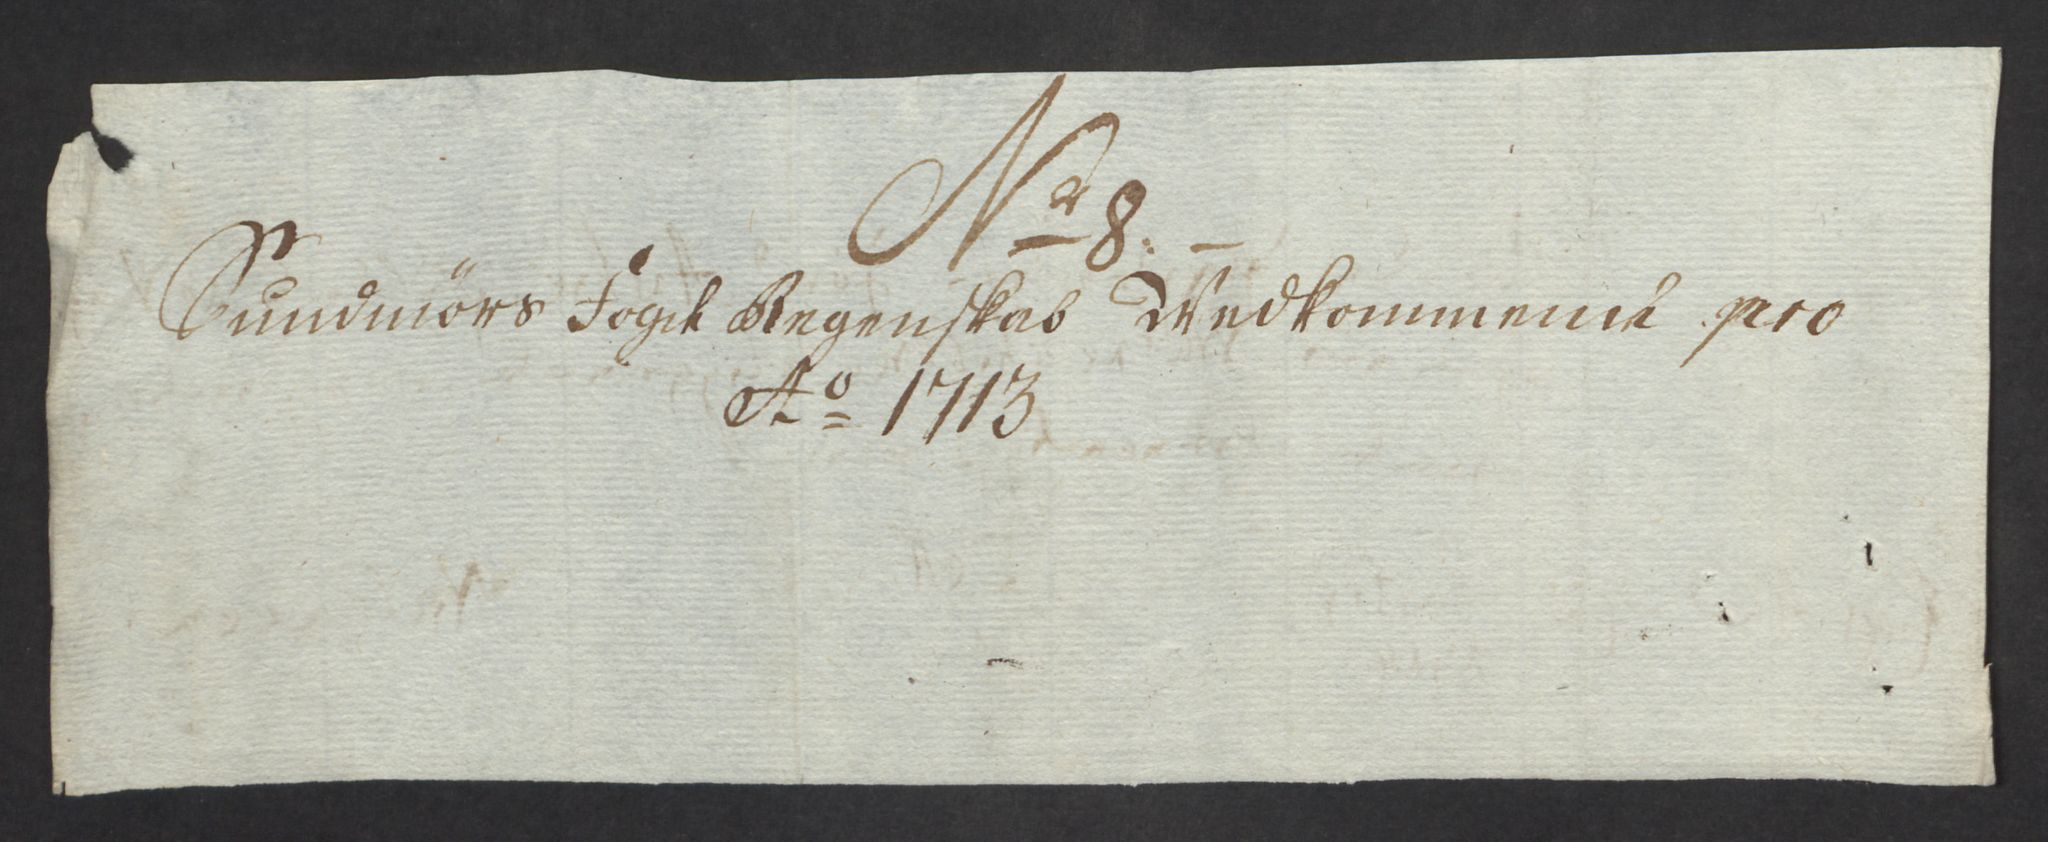 No 8. –
Sundmörs Fogd Regenskab Vedkommend pro
Ao 1713